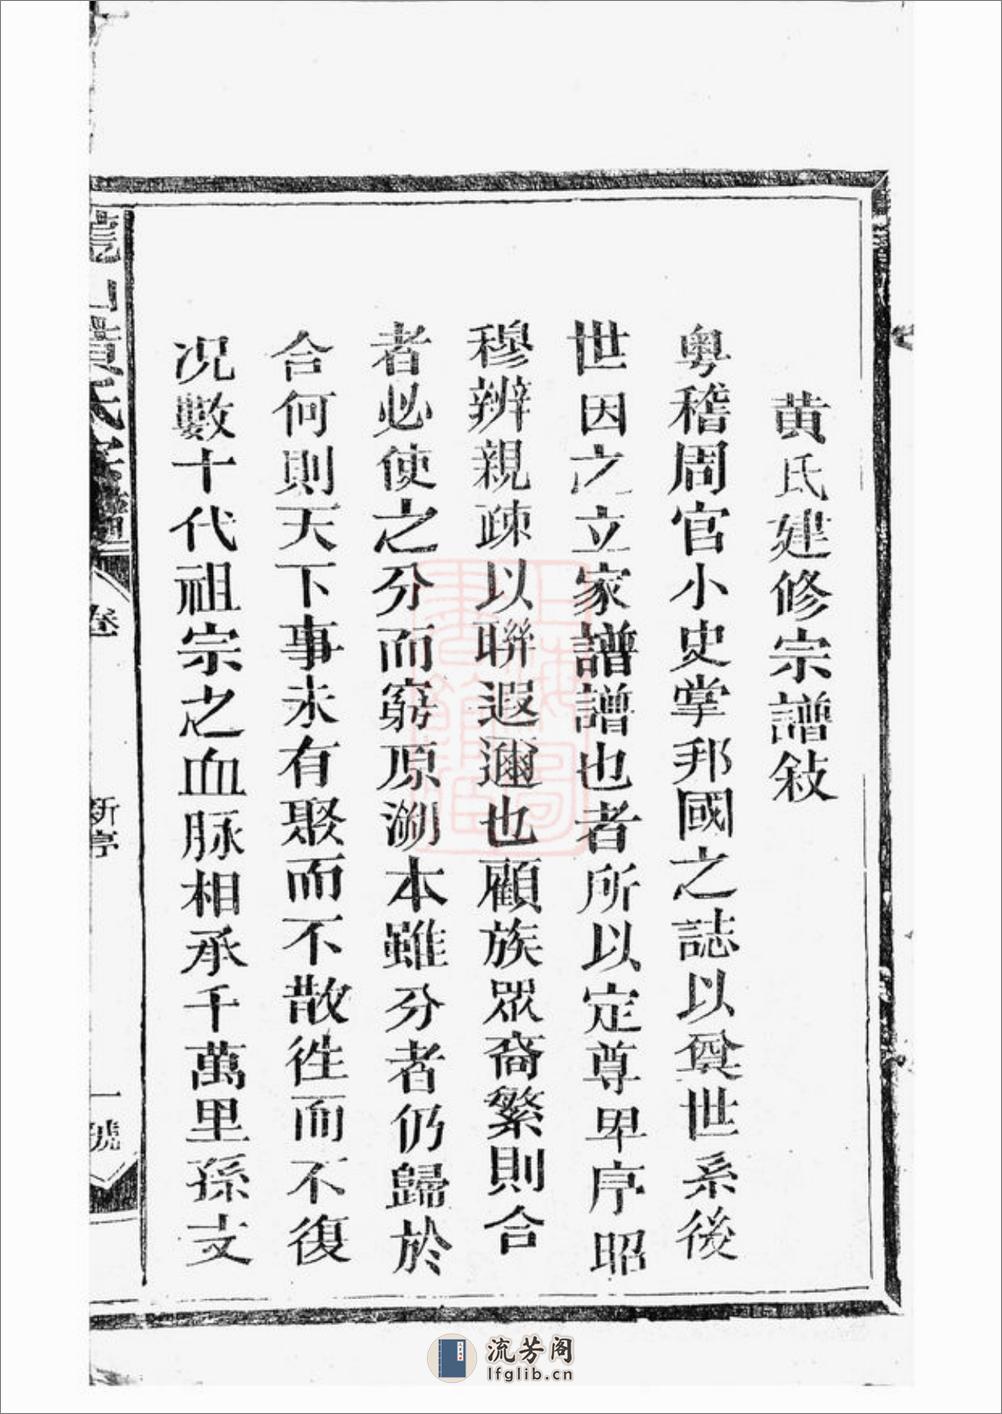 黃氏建修宗譜敍
粵稽周官小史掌邦國之誌以奠世系後
世因之立家譜譜也者所以定尊卑序昭
穆辨親疎以聯遐邇也顧族眾裔繁則合
者必使之分而窮原溯本雖分者仍歸於
合何則天下事未有聚而不散徃而不復
况數十代祖宗之血脉相承千萬里孫支
山黃氏宗譜
卷
新亭
一號
上海圖書館藏
流芳阁
lfglib.cn